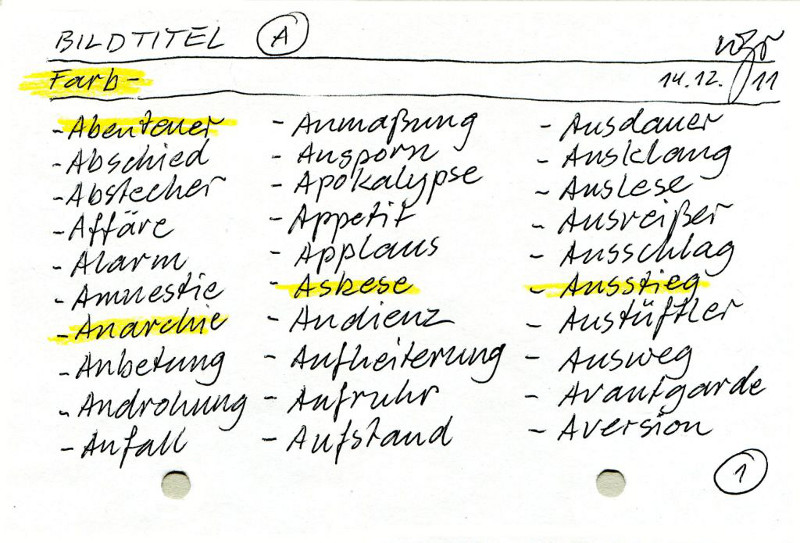 BILDTITEL A
Farb-
14.12. 11
- Abenteuer
- Abschied
- Abstecher
- Affäre
- Alarm
- Amnestie
- Anarchie
- Anbetung
- Androhung
- Anfall
- Anmaßung
- Ansporn
- Apokalypse
- Appetit
- Applaus
- Askese
- Audienz
- Aufheiterung
- Aufruhr
- Aufstand
- Ausdauer
- Ausklang
- Auslese
- Ausreißer
- Ausschlag
- Ausstieg
- Austüftler
- Ausweg
- Avantgarde
- Aversion
1